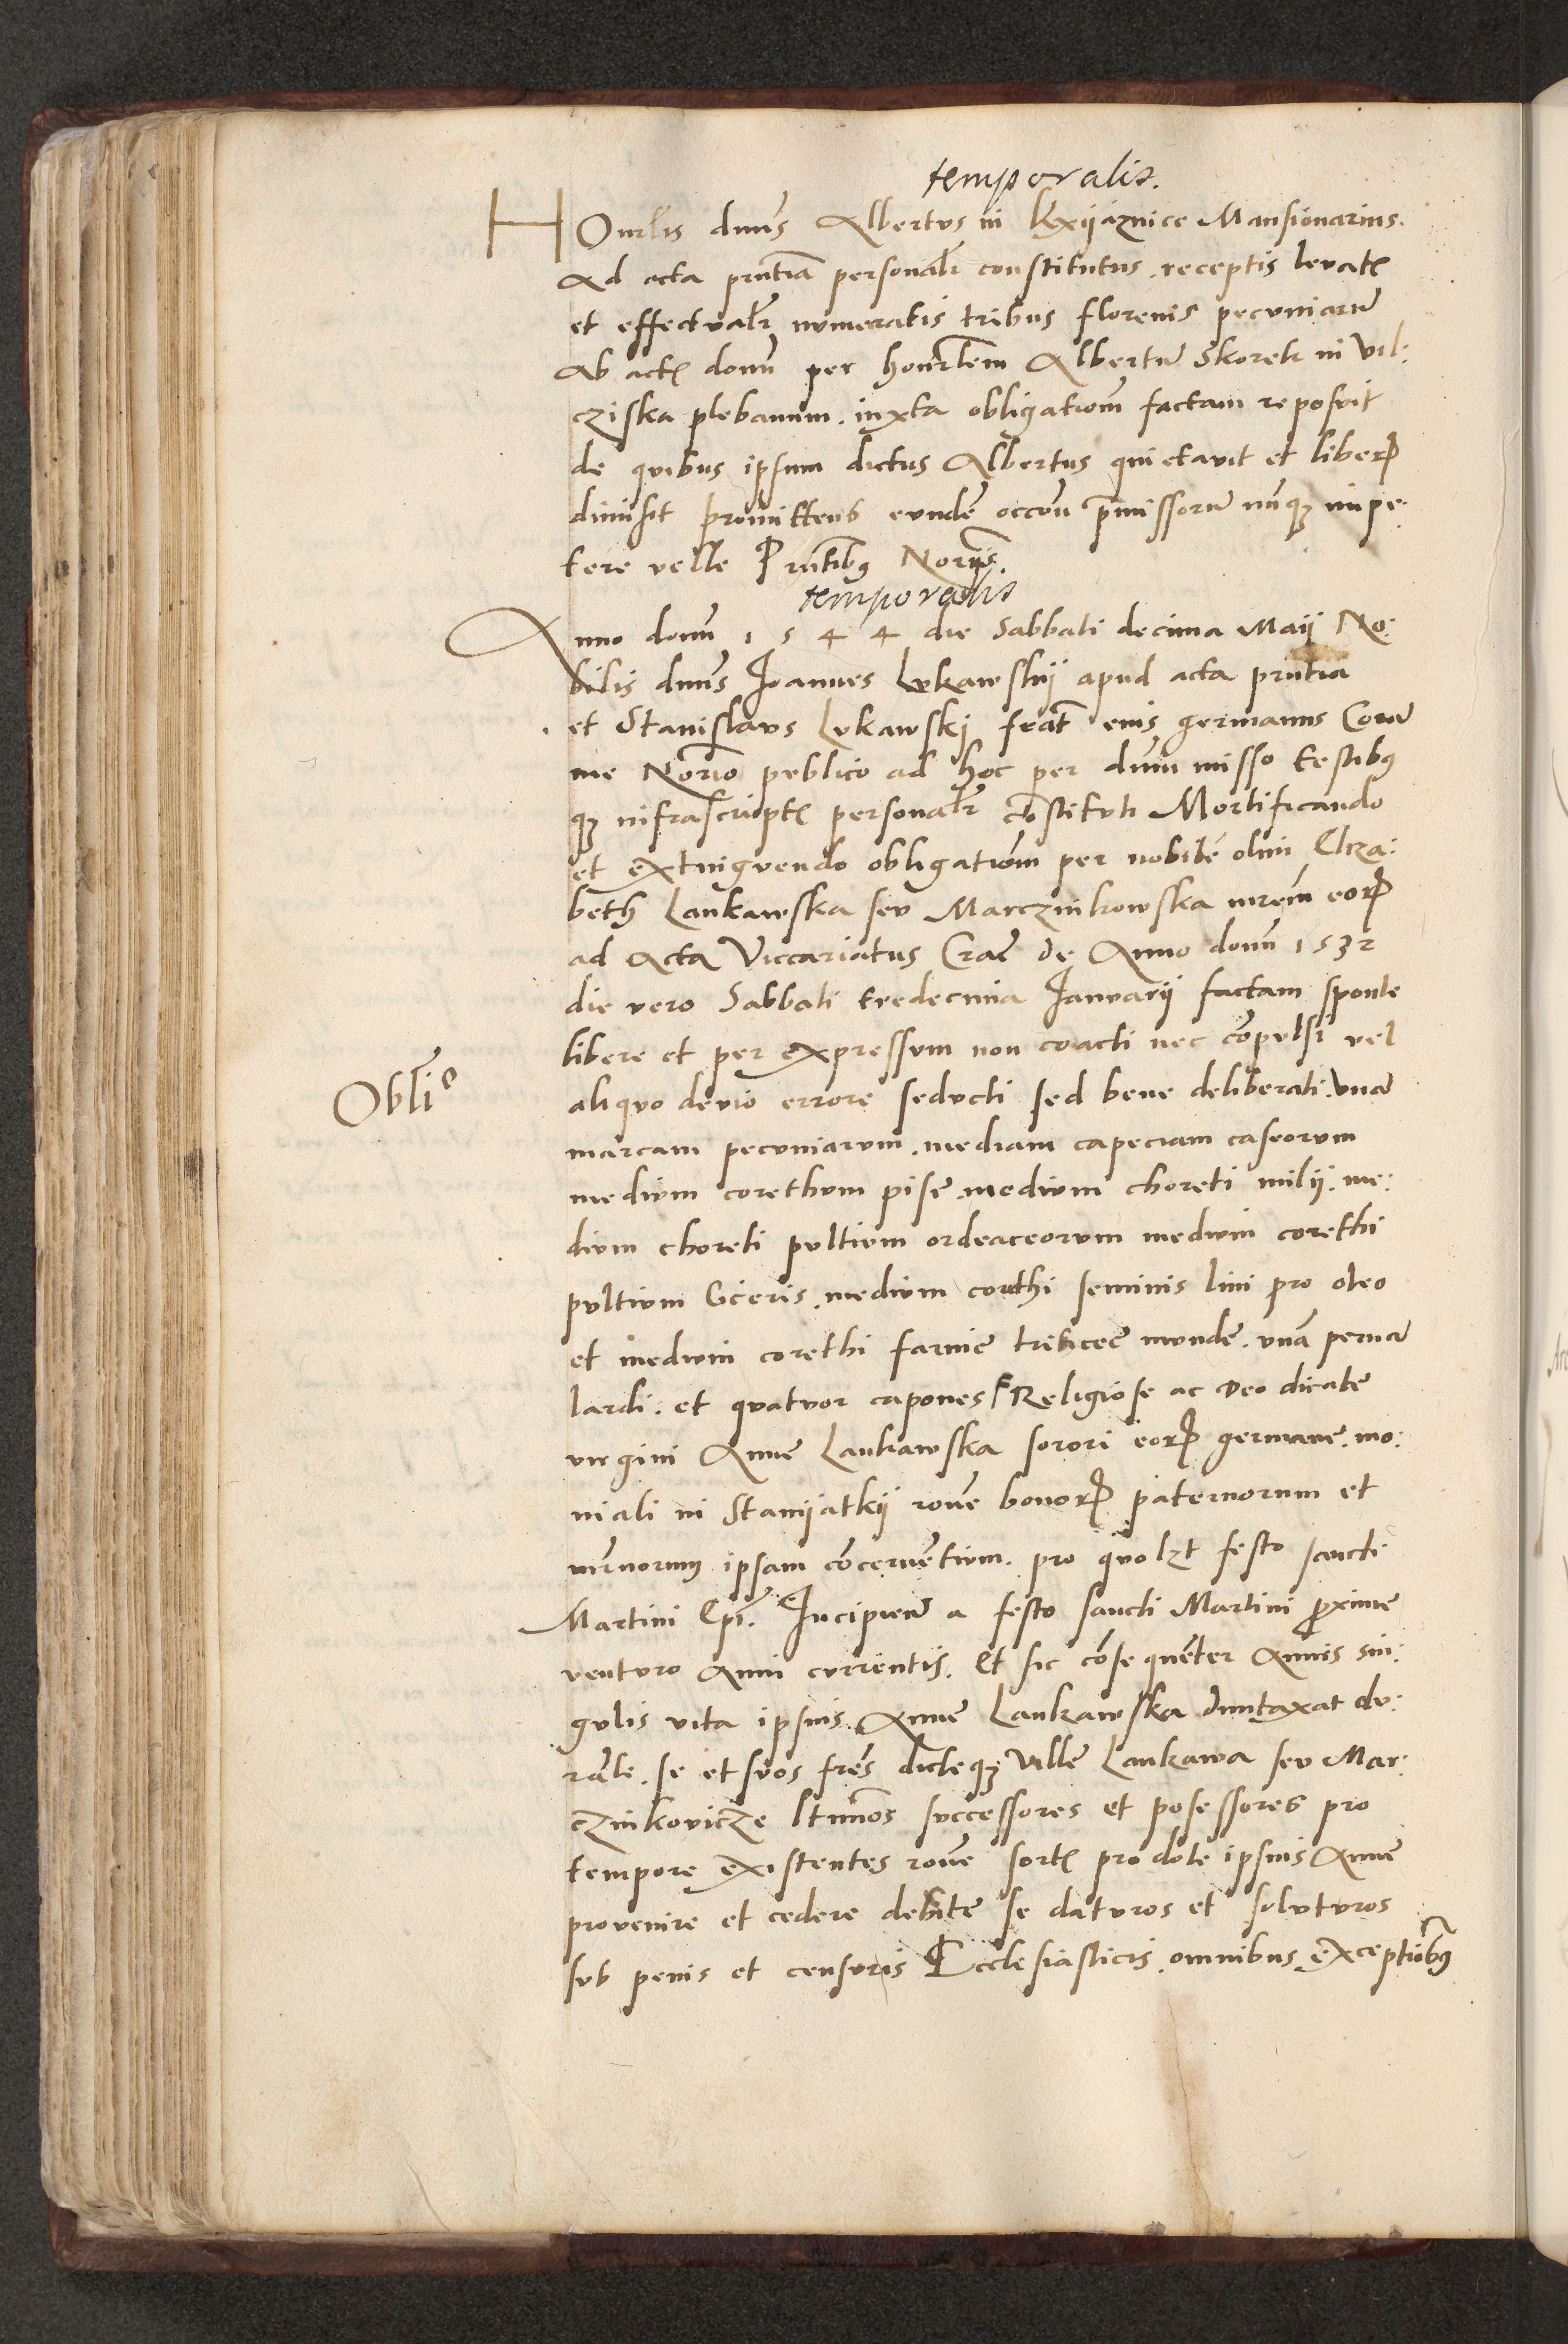 temporalis.
HOnrlis dnus Albertus in Kxyąznice Mansionarius.
Ad acta pntia personalr constitutus. receptis levatis
et effectualr numeratis tribus florenis pecuniarum
Ab actis domini per honrlem Albertum Skorek in Vil:
cziska plebanum. iuxta obligationem factam reposuit
de quibus ipsum dictus Albertus quietavit et liberum
dimisit promittens eundem occone premissorum nunquam impe:
tere velle Prntibus Noriis.
temporalis
Anno domini 1544 die Sabbati decima Maii No:
bilis dnus Joannes Lukawskij apud acta pntia
et Stanislaus Lukawskj frater eius germanus Coram
me Norio publico ad hoc per dnum misso testibus
que infrascriptis personalr constituti Mortificando
et extinguendo obligationem per nobilem olim Eliza:
beth Lankawska seu Marczinkowska matrem eorum
ad Acta Viccariatus Crac de Anno domini 1532
die vero Sabbati tredecima Januarij factam sponte
libere et per expressum non coacti nec compulsi vel
Oblio
aliquo devio errore seducti sed bene deliberati. unam
marcam pecuniarum. mediam capeciam caseorum
medium corethum pise. medium choreti milij. me:
dium choreti pultium ordeaceorum medium corethi
pultium Ciceris. medium corethi seminis lini pro oleo
et medium corethi farine triticee munde. unam pernam
lardi. et quatuor capones Religiose ac Deo dicate
virgini Anne Lankawska sorori eorum germane. mo:
niali in Stanijatkij rone bonorum paternorum et
mrnorum ipsam concernentium. pro quolzt festo sancti
Martini Epi. Incipiendo a festo sancti Martini proxime
venturo Anni currentis. Et sic consequenter Annis sin:
gulis vita ipsius Anne Lankawska duntaxat du:
rante. se et suos fres dicteque Ville Lankawa seu Mar:
czinkovicze ltimos successores et posessores pro
tempore existentes rone sortis pro dote ipsius Anne
provenire et cedere debite se daturos et soluturos
sub penis et censuris Ecclesiasticis. omnibus exceptionibus